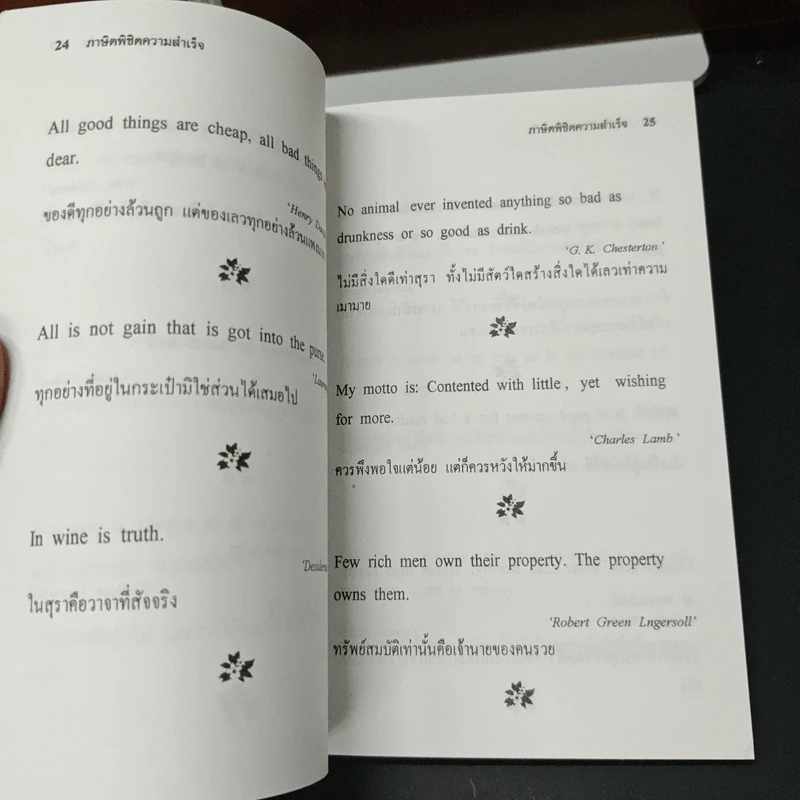 24 ภาษิตพิชิตความสำเร็จ
All good things are cheap, all bad things
dear.
'Henry
ของดีทุกอย่างล้วนถูก แต่ของเลวทุกอย่างล้วนแพง
All is not gain that is got into the purse
ทุกอย่างที่อยู่ในกระเป๋ามิใช่ส่วนได้เสมอไป
In wine is truth.
ในสุราคือวาจาที่สัจจริง
ภาษิตพิชิตความสำเร็จ 25
No animal ever invented anything so bad as
drunkness or so good as drink.
'G. K. Chesterton'
ไม่มีสิ่งใดดีเท่าสุรา ทั้งไม่มีสัตว์ใดสร้างสิ่งใดได้เลวเท่าความ
เมามาย
My motto is: Contented with little, yet wishing
for more.
'Charles Lamb'
ควรพึงพอใจแต่น้อย แต่ก็ควรหวังให้มากขึ้น
Few rich men own their property. The property
owns them.
'Robert Green Lngersoll'
ทรัพย์สมบัติเท่านั้นคือเจ้านายของคนรวย